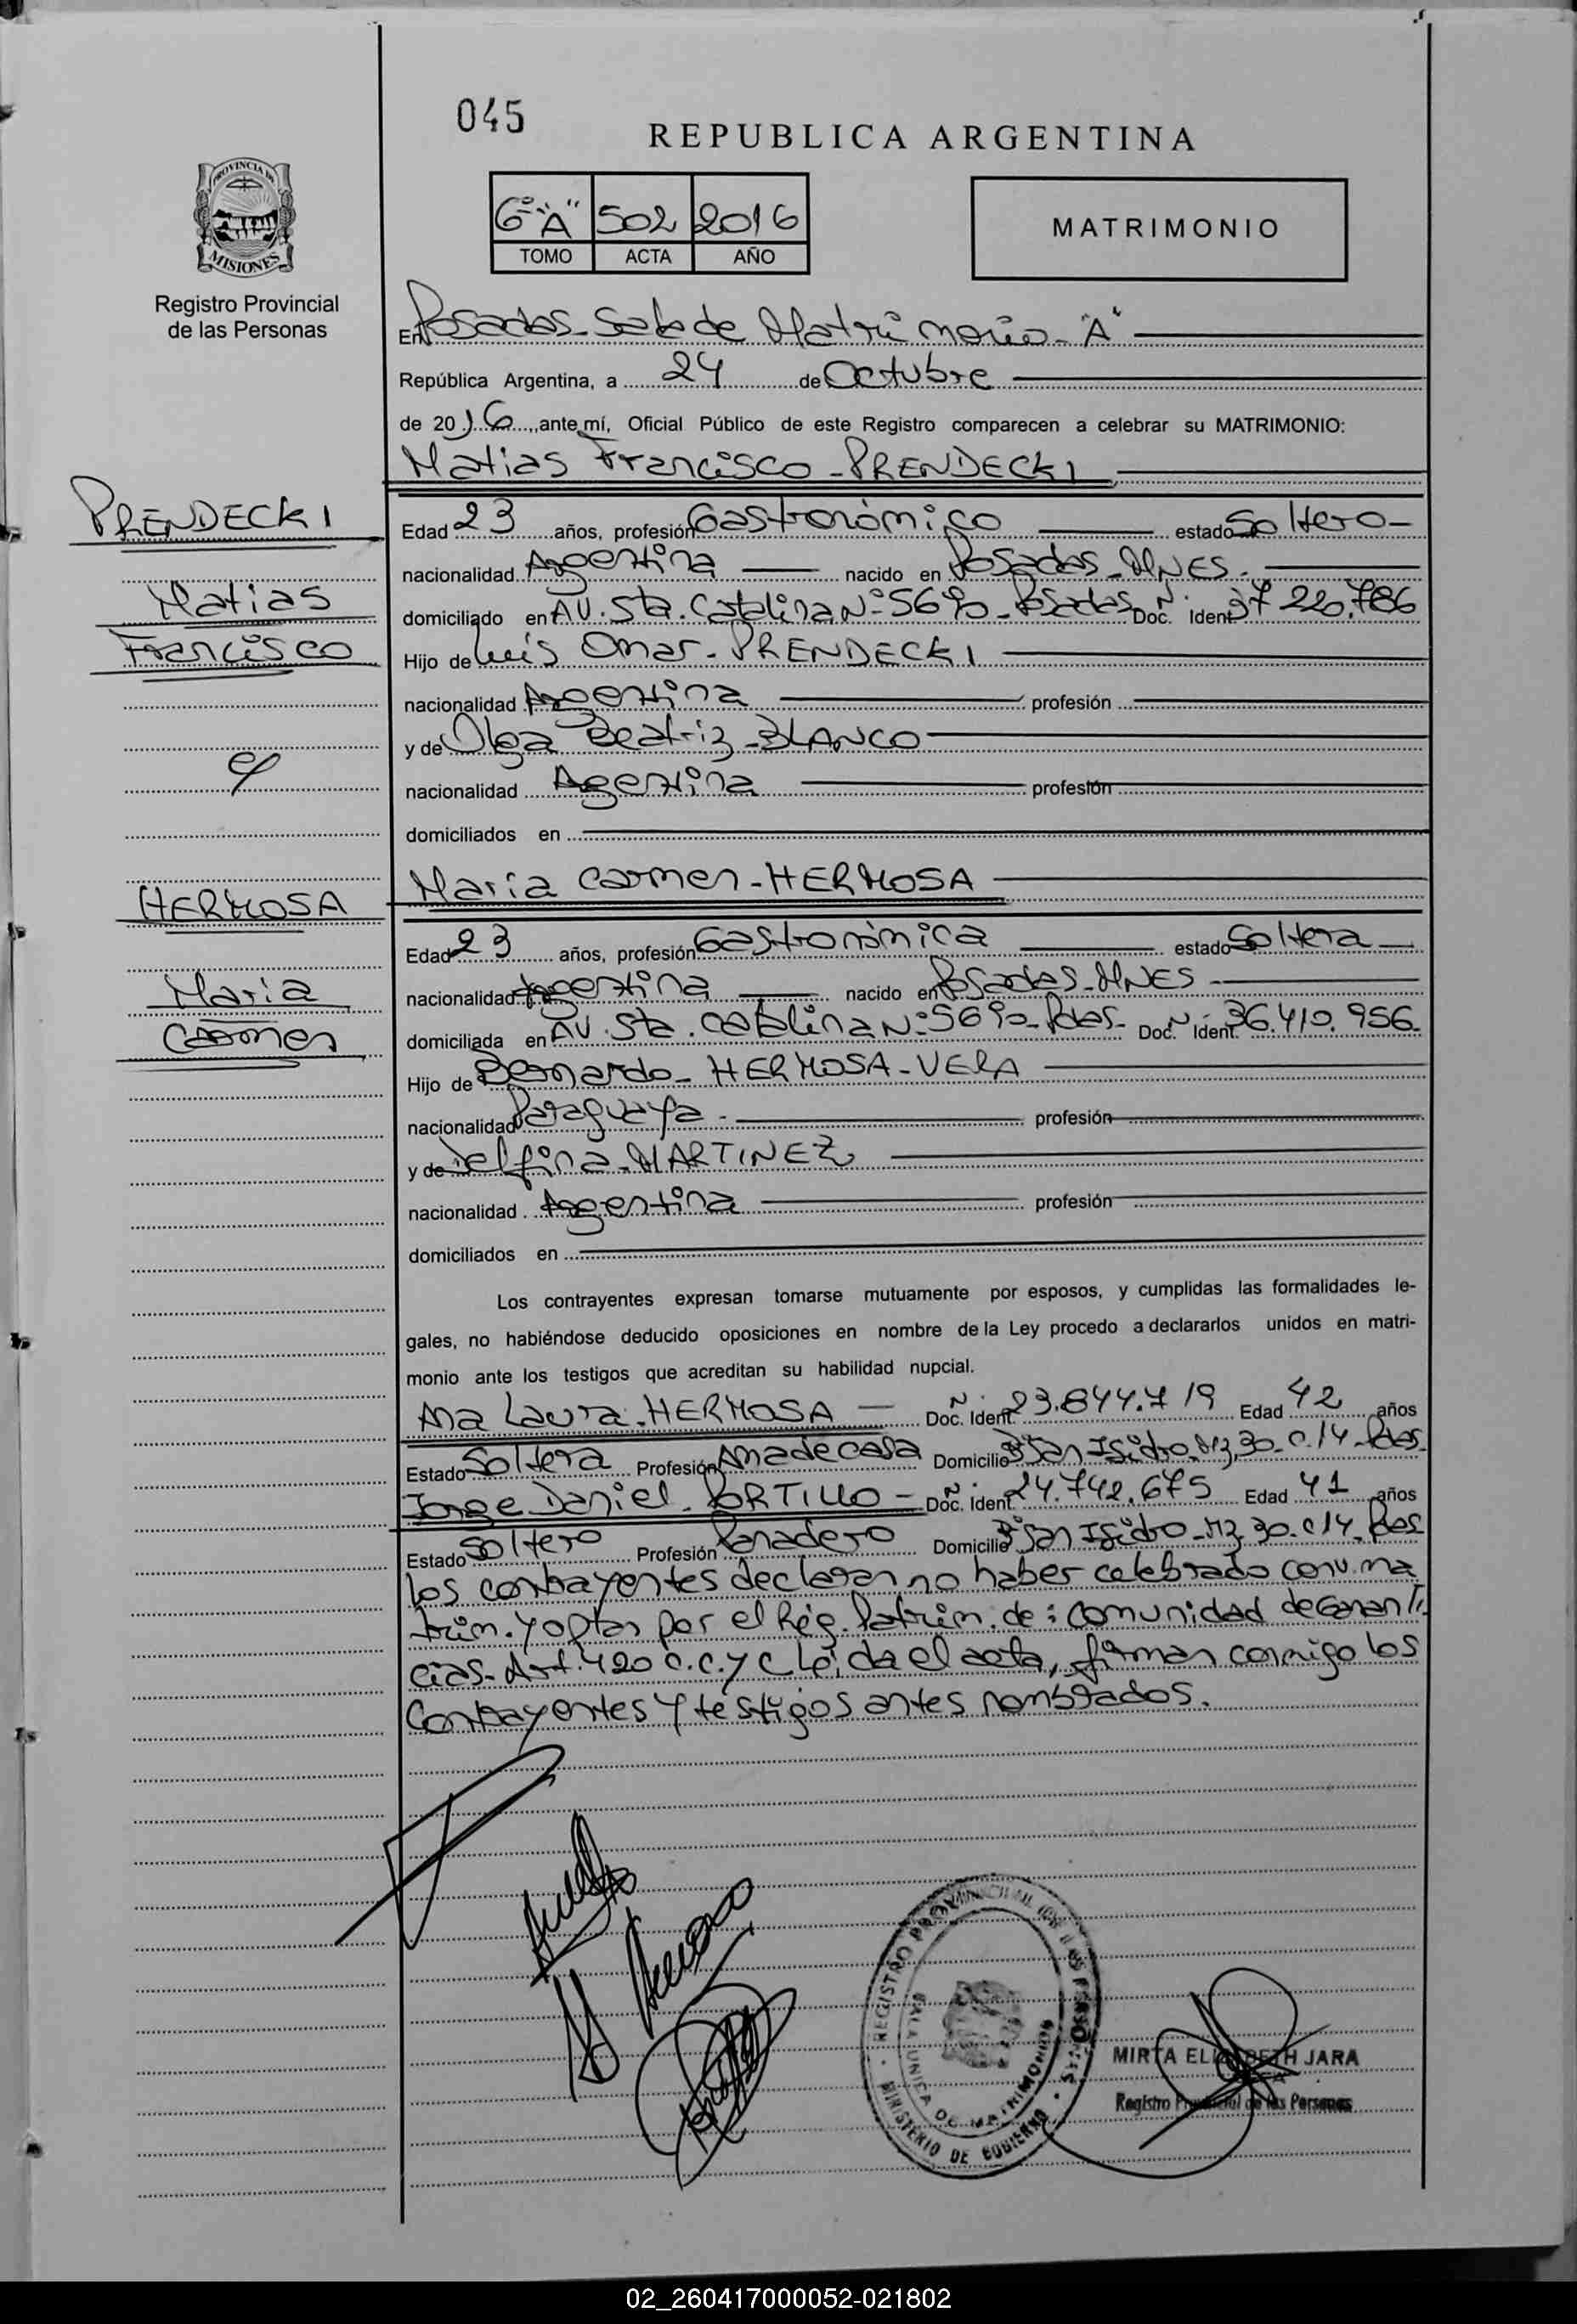 045
REPUBLICA ARGENTINA
PROVINCIA DE
MISIONES
Registro Provincial
de las Personas
6º "A" 502 2016
TOMO ACTA AÑO
MATRIMONIO
En Posadas - Sala de Matrimonio - "A"
República Argentina, a 24 de Octubre
de 2016, ante mí, Oficial Público de este Registro comparecen a celebrar su MATRIMONIO:
Matias Francisco - PRENDECKI
PRENDECKI
Matias
Francisco
y
HERMOSA
Maria
Carmen
Edad 23 años, profesión Gastronómico estado Soltero -
nacionalidad Argentina nacido en Posadas - MNES.
domiciliado en AV. Sta. Catalina Nº 5690 - Posadas Doc. Nº Ident 37.220.786
Hijo de Luis Omar - PRENDECKI
nacionalidad Argentina profesión
y de Olga Beatriz - BLANCO
nacionalidad Argentina profesión
domiciliados en
Maria Carmen - HERMOSA
Edad 23 años, profesión Gastronómica estado Soltera
nacionalidad Argentina nacido en Posadas - MNES
domiciliada en AV. Sta. Catalina Nº 5690 - Pdas. Doc. Nº Ident. 36.410.956
Hijo de Bernardo - HERMOSA - VERA
nacionalidad Paraguaya - profesión
y de Delfina - MARTINEZ
nacionalidad Argentina profesión
domiciliados en
Los contrayentes expresan tomarse mutuamente por esposos, y cumplidas las formalidades le-
gales, no habiéndose deducido oposiciones en nombre de la Ley procedo a declararlos unidos en matri-
monio ante los testigos que acreditan su habilidad nupcial.
Ana Laura - HERMOSA - Doc. Nº Ident. 23.844.719 Edad 42 años
Estado Soltera Profesión Ama de casa Domicilio Bº San Isidro - Mz 30 - C.14 - Pdas.
Jorge Daniel - PORTILLO - Doc. Nº Ident. 24.742.675 Edad 41 años
Estado Soltero Profesión Panadero Domicilio Bº San Isidro - Mz 30 - C 14 - Pdas
los contrayentes declaran no haber celebrado conv. ma
trim. y optan por el Rég. Patrim. de: comunidad de Ganan
cias - Art. 420 C.C. y C Leída el acta, firman conmigo los
Contrayentes y testigos antes nombrados.
REGISTRO PROVINCIAL DE LAS PERSONAS
SALA UNICA DE MATRIMONIOS
MINISTERIO DE GOBIERNO
MIRTA ELIZABETH JARA
Registro Provincial de las Personas
02_260417000052-021802